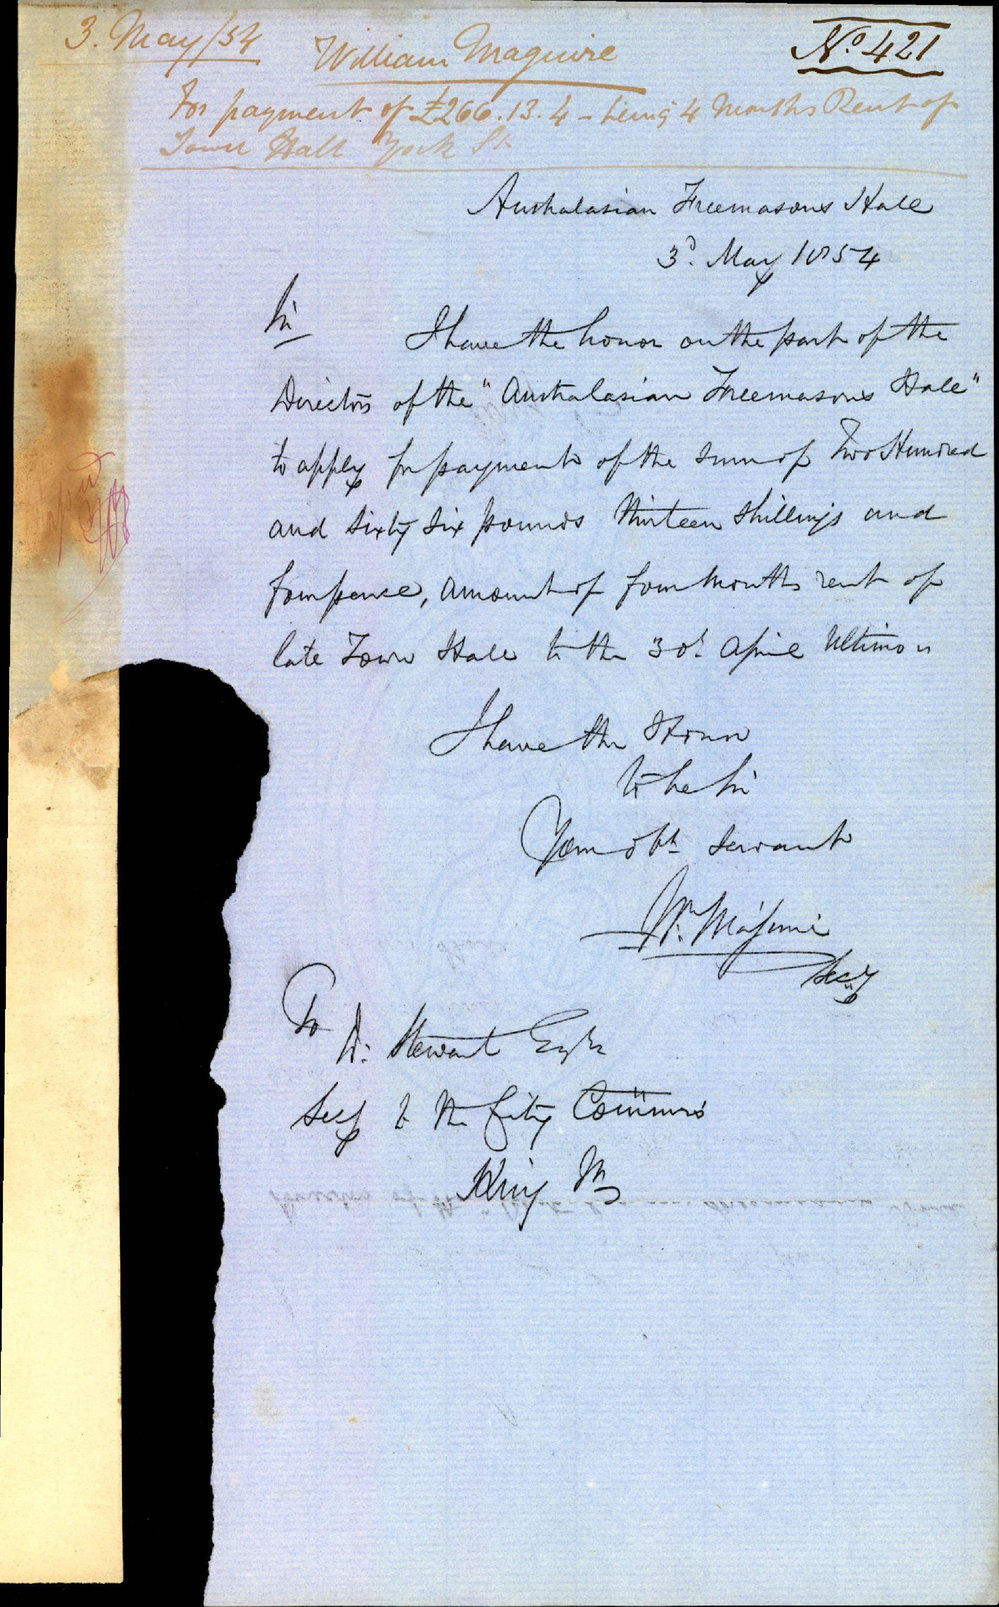 3. May/54
William Maguire
No. 421
For payment of £266.13.4 - being 4 Months Rent of
Town Hall York St.
Australasian Freemasons Hall
3d. May 1854
Sir
I have the honor on the part of the
Directors of the "Australasian Freemasons Hall"
to apply for payment of the sum of Two Hundred
and Sixty Six pounds thirteen shillings and
fourpence, amount of four Months rent of
late Town Hall to the 30th April Ultimo
I have the Honor
to be Sir
Your obt. Servant
Wm. Maguire
Secy
To
W. Stewart Esqre
Secy to the City Commrs
King St